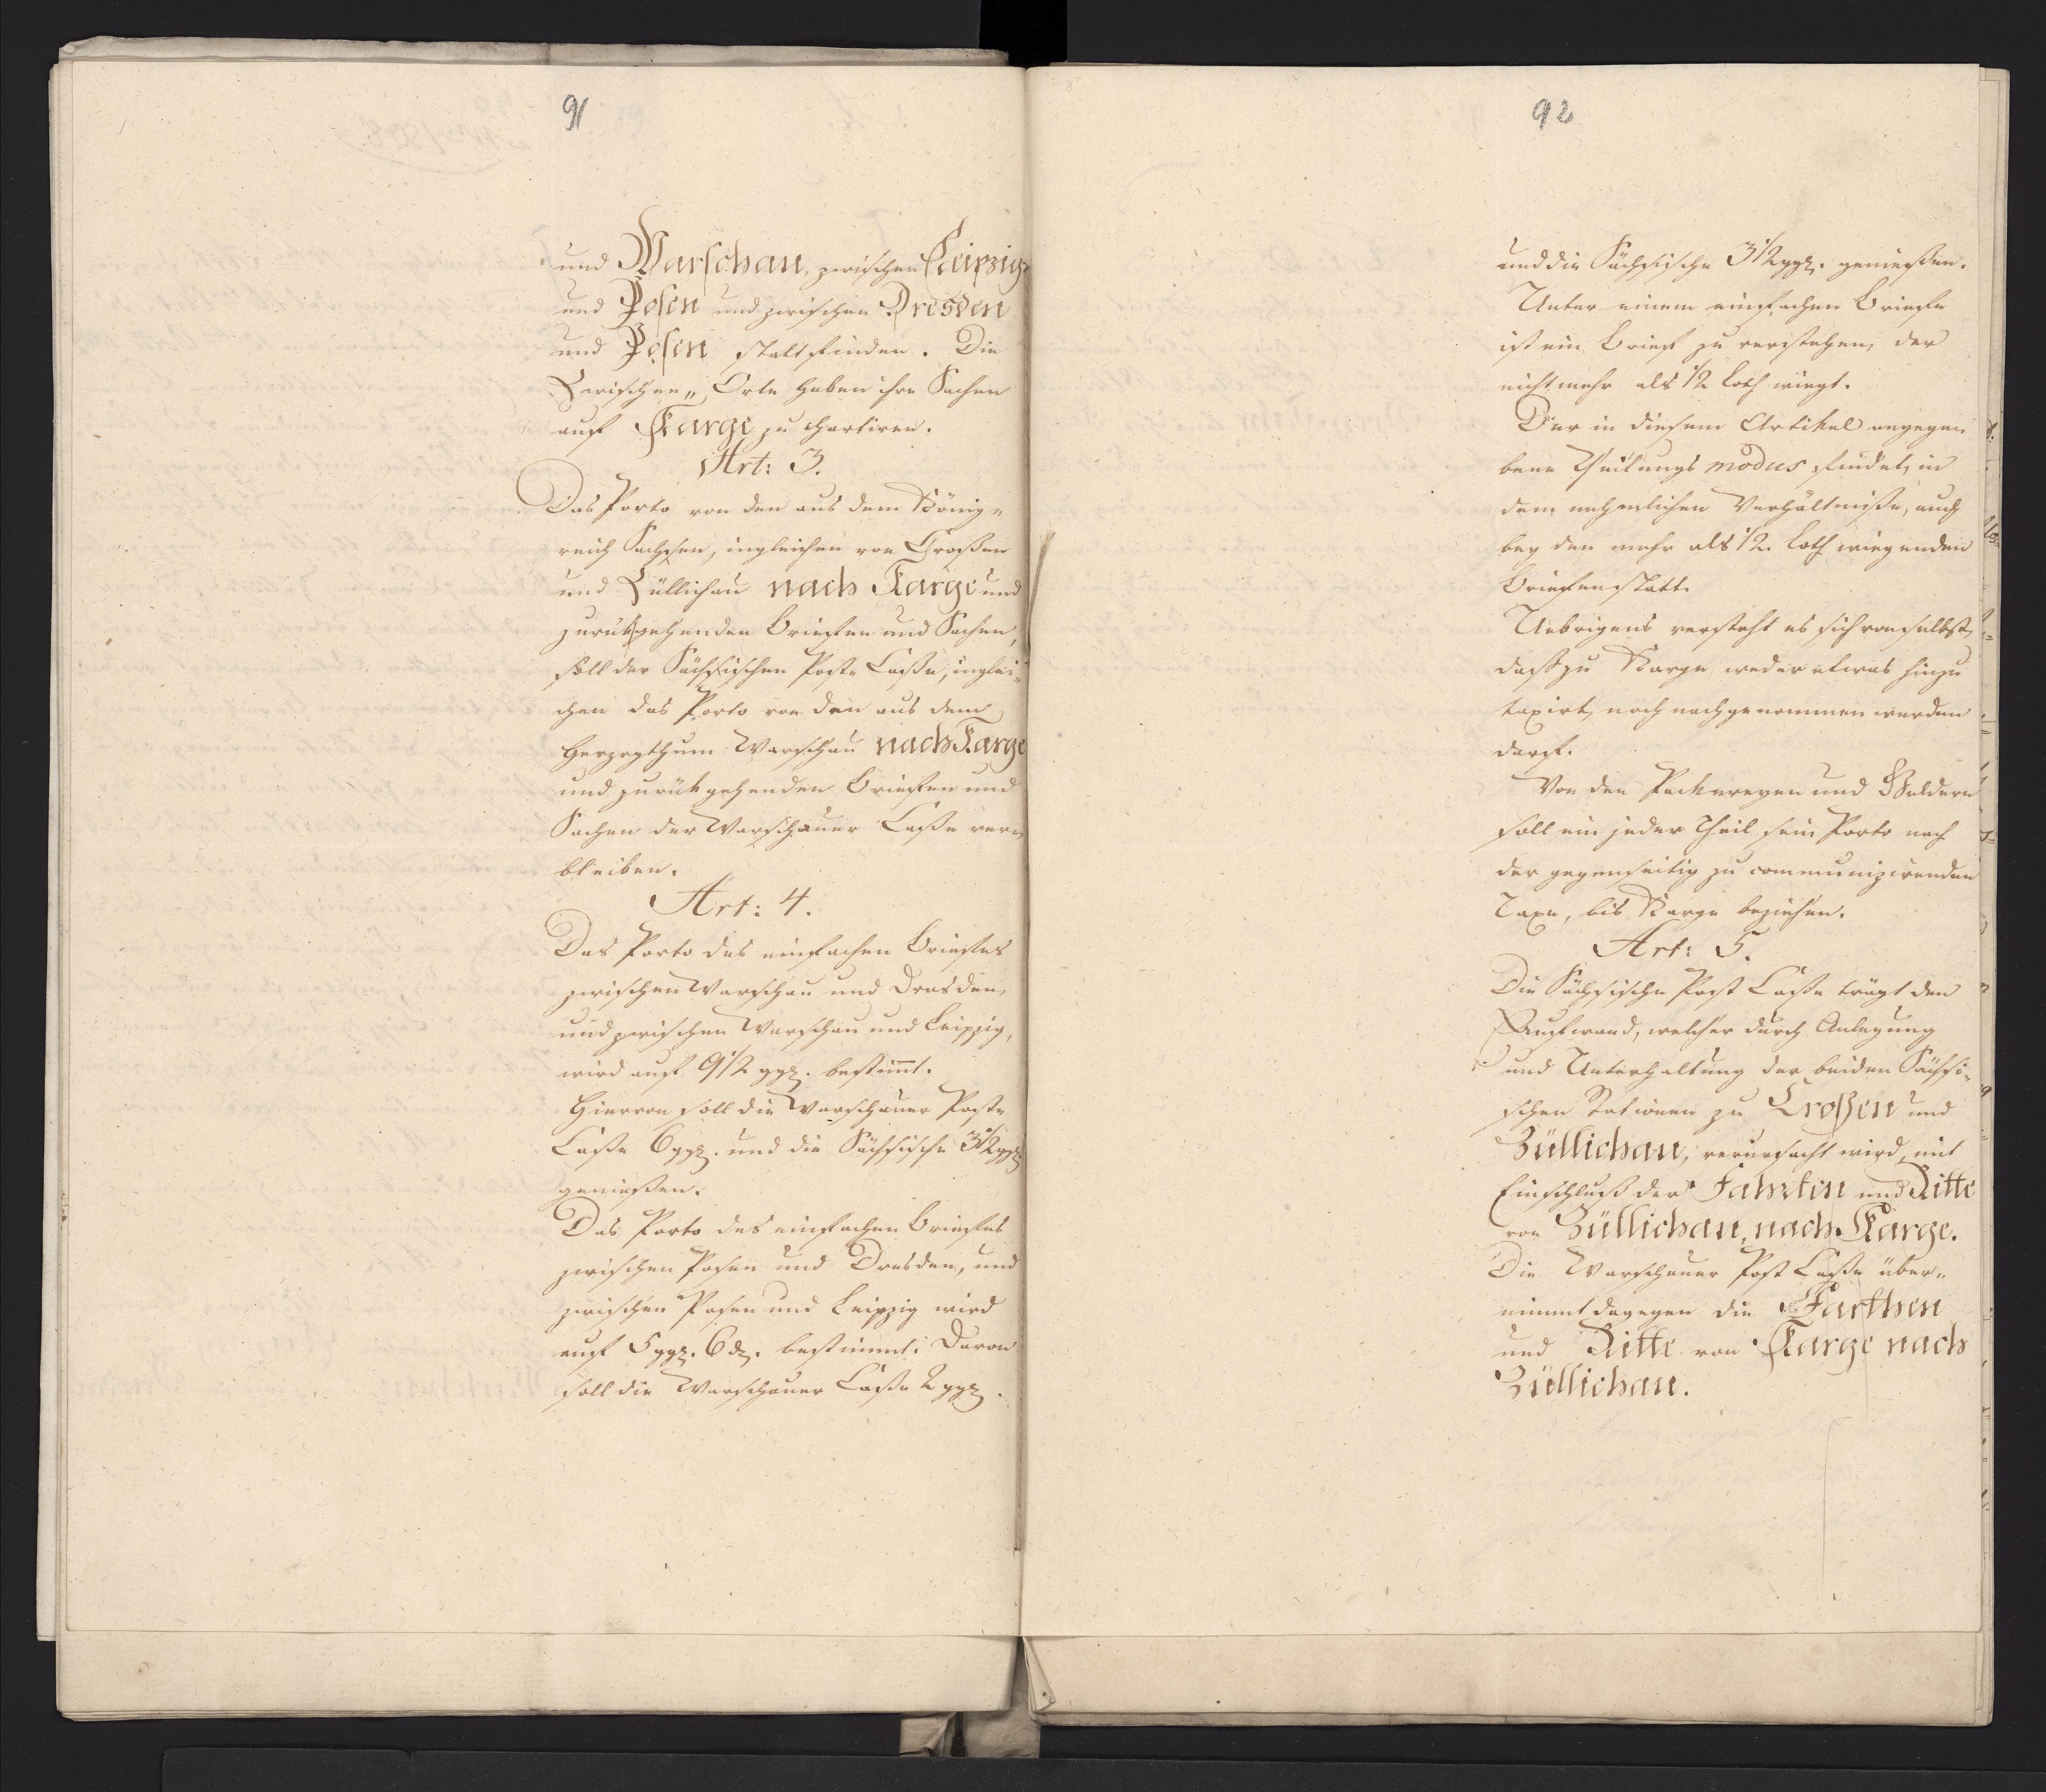 91
und Warschau, zwischen Leipzig
und Posen und zwischen Dresden
und Posen statt finden. Die
Zwischen„ Orte haben ihre Sachen
auf Karge zu chartiren.
Art: 3.
Das Porto von den aus dem König„
reich Sachsen, ingleichen von Croßen
und Züllichau nach Karge und
zurükgehenden Briefen und Sachen,
soll der Sächsischen Post Casse, inglei„
chen das Porto von den aus dem
Herzogthum Warschau nach Karge
und zurük gehenden Briefen und
Sachen der Warschauer Casse ver„
bleiben.
Art: 4.
Das Porto des einfachen Briefes
zwischen Warschau und Dresden,
und zwischen Warschau und Leipzig,
wird auf 9 1/2 ggr. bestimt.
Hiervon soll die Warschauer Post
Casse 6 ggr. und die Sächsische 3 1/2 ggr.
genießen.
Das Porto des einfachen Briefes
zwischen Posen und Dresden, und
zwischen Posen und Leipzig wird
auf 5 ggr. 6 d. bestimmt. Davon
soll die Warschauer Casse 2 ggr.
92
und die Sächsische 3 1/2 ggr. genießen.
Unter einem einfachen Briefe
ist ein Brief zu verstehen, der
nicht mehr als 1/2 Loth wiegt.
Der in diesem Artikel angege„
bene Theilungs modus findet, in
dem nehmlichen Verhältniße, auch
bey den mehr als 1/2 Loth wiegenden
Briefen statt.
Uebrigens versteht es sich von selbst,
daß zu Karge weder etwas hinzu
taxirt, noch nachgenommen werden
darf.
Von den Packereyen und Geldern
soll ein jeder Theil sein Porto nach
der gegenseitig zu communizirenden
Taxe, bis Karge beziehen.
Art: 5.
Die Sächsische Post Casse trägt den
Aufwand, welcher durch Anlegung
und Unterhaltung der beiden Sächsi„
schen Stationen zu Croßen und
Züllichau, verursacht wird, mit
Einschluß der Fahrten und Ritte
von Züllichau, nach Karge.
Die Warschauer Post Casse über„
nimmt dagegen die Farthen
und Ritte von Karge nach
Züllichau.